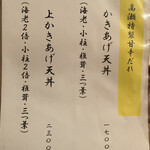 高瀬特製甘辛だれ
かきあげ天丼 一七〇〇
(海老・小柱・椎茸・三つ葉)
上かきあげ天丼 二三〇〇
(海老2倍・小柱2倍・椎茸・三つ葉)